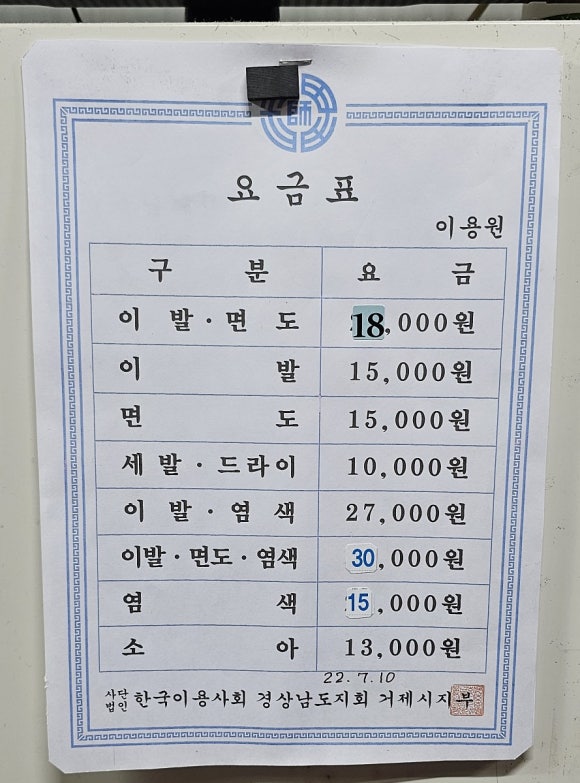 師
요금표
이용원
구 분 요 금
이 발·면 도 18,000원
이 발 15,000원
면 도 15,000원
세 발·드라이 10,000원
이 발·염 색 27,000원
이발·면도·염색 30,000원
염 색 15,000원
소 아 13,000원
22.7.10
사단법인 한국이용사회 경상남도지회 거제시지부